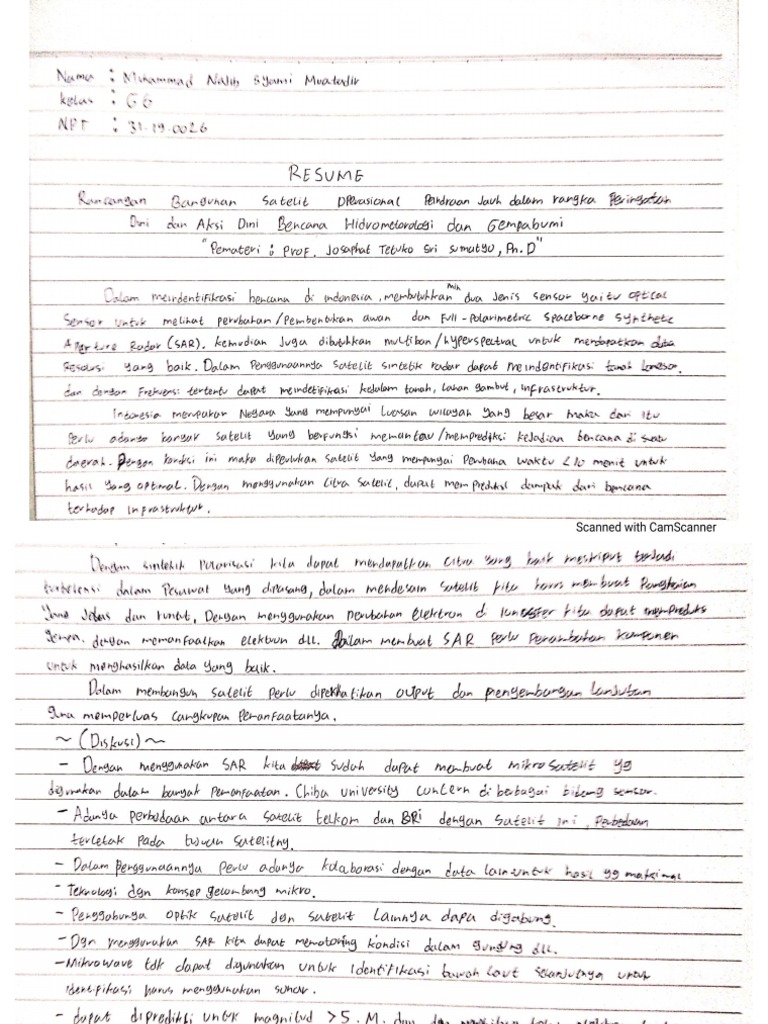 Nama : Muhammad Nalih Syami
Kelas : GG
NPT : 31.19.0026
RESUME
Rancangan Bangunan Satelit Operasional dalam rangka Peringatan
Dini dan Aksi Dini Bencana Hidrometorologi dan Gempabumi
"Pemateri : Prof. Josaphat Tetuko Sri Sumatyo, Ph.D"
Dalam meindentifikasi bencana di indonesia, membutuhkan min dua Jenis sensor yaitu optical
Sensor untuk melihat perubahan/Pembentukan awan dan Full-Polarimetric Spaceborne Synthetic
Aperture Radar (SAR). kemudian Juga dibutuhkan multiban/hyperspectral untuk mendapatkan data
Resolusi yang baik. Dalam Penggunaannya Satelit sintetik radar dapat meindentifikasi tanah Longsor,
dan dengan Frekuensi tertentu dapat meindetifikasi kedalam tanah, lahan gambut, infrastruktur.
Indonesia merupakan Negara yang mempunyai Luasan wilayah yang besar maka dari itu
Perlu adanya banyak Satelit yang berfungsi memantau/memprediksi kejadian bencana di suatu
daerah. Dengan kondisi ini maka diperlukan satelit yang mempunyai waktu <10 menit untuk
hasil yang optimal. Dengan menggunakan Citra Satelit, dapat mempredeksi dampak dari bencana
terhadap infrastruktur.
Scanned with CamScanner
Dengan Polarisasi kita dapat mendapatkan Citra yang baik meskiput terjadi
dalam Pesawat yang dipasang, dalam mendesain satelit kita harus membuat
yang Jelas dan runut, Dengan menggunakan perubahan elektron di kita dapat mempreduks
gempa, dengan memanfaatkan elektron dll. Dalam membuat SAR perlu komponen
untuk menghasilkan data yang baik.
Dalam membangun satelit perlu diperhatikan output dan pengembangan lanjutan
guna memperluas cangkupan Pemanfaatanya.
~ (Diskusi) ~
- Dengan menggunakan SAR kita sudah dapat membuat mikro satelit yg
digunakan dalam banyak Pemanfaatan. Chiba university concern di berbagai bidang sensor.
- Adanya perbedaan antara satelit telkom dan BRi dengan satelit ini, Perbedaan
terletak pada tujuan satelitny.
- Dalam penggunaannya perlu adanya kolaborasi dengan data lain untuk hasil yg maksimal
- Teknologi dgn konsep gelombang mikro.
- Penggabunya optik satelit dgn satelit Lainnya dapa digabung.
- Dgn menggunakan SAR kita dapat memotoring kondisi dalam gunung dll.
- Mikrowave tdk dapat digunakan untuk identifikasi bawah laut selanjutnya untuk
identifikasi harus menggunakan sonar.
- dapat diprediksi untuk magnitud >5. M. dan